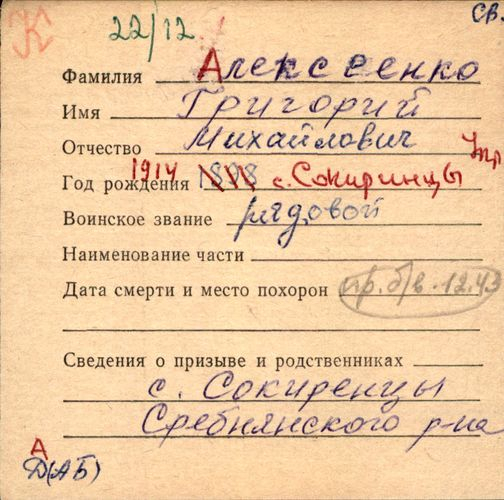 К 22/12 св.
Фамилия Алексеенко
Имя Григорий
Отчество Михайлович
Год рождения 1914 1898 с. Сокиринцы
Воинское звание рядовой
Наименование части
Дата смерти и место похорон пр. б/в. 12.43
Сведения о призыве и родственниках
с. Сокиренцы
Сребнянского р-на
А
Д(АБ)